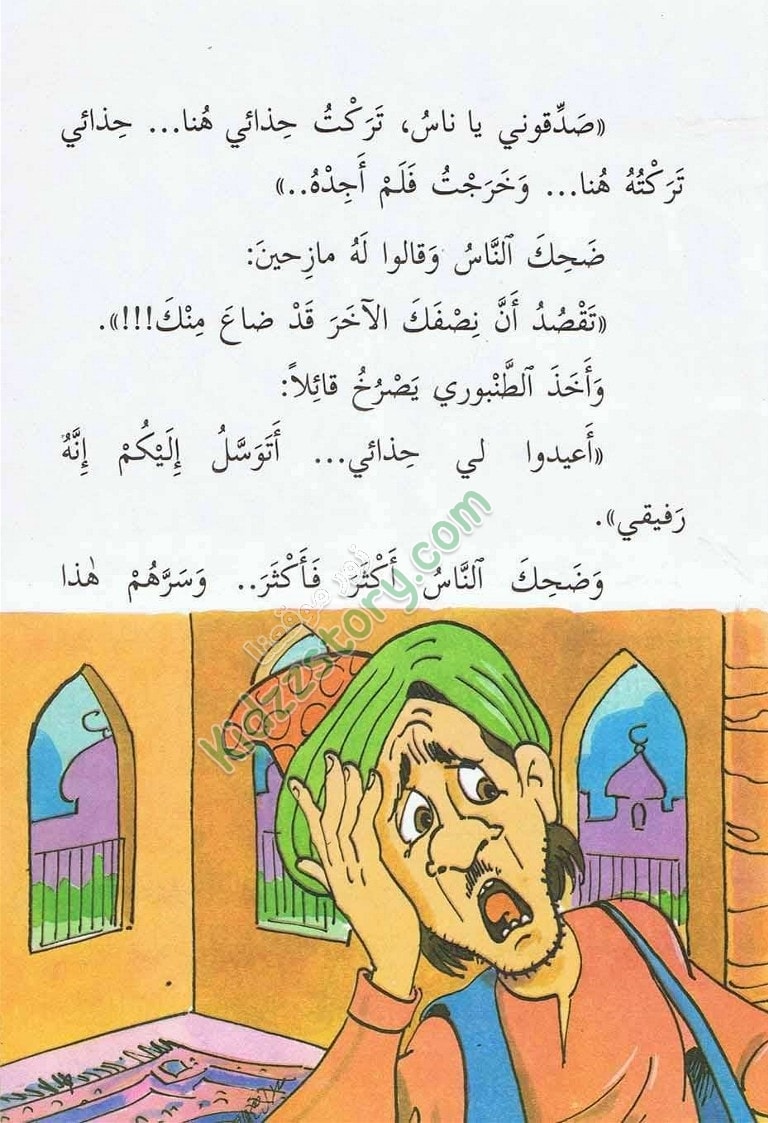 «صَدِّقوني يا ناسُ، تَرَكْتُ حِذائي هُنا... حِذائي
تَرَكْتُهُ هُنا... وَخَرَجْتُ فَلَمْ أَجِدْهُ..»
ضَحِكَ ٱلنَّاسُ وَقالوا لَهُ مازِحينَ:
«تَقْصُدُ أَنَّ نِصْفَكَ الآخَرَ قَدْ ضاعَ مِنْكَ!!!».
وَأَخَذَ ٱلطَّنْبوري يَصْرُخُ قائِلاً:
«أَعيدوا لي حِذائي... أَتَوَسَّلُ إِلَيْكُمْ إِنَّهُ
رَفيقي».
وَضَحِكَ ٱلنَّاسُ أَكْثَرَ فَأَكْثَرَ.. وَسَرَّهُمْ هٰذا
زوروا موقعنا
kidzzstory.com